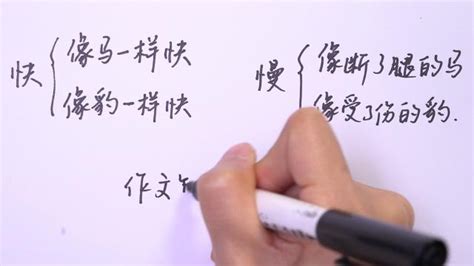 快
像马一样快
像豹一样快
慢
像断了腿的马
像受了伤的豹.
作文